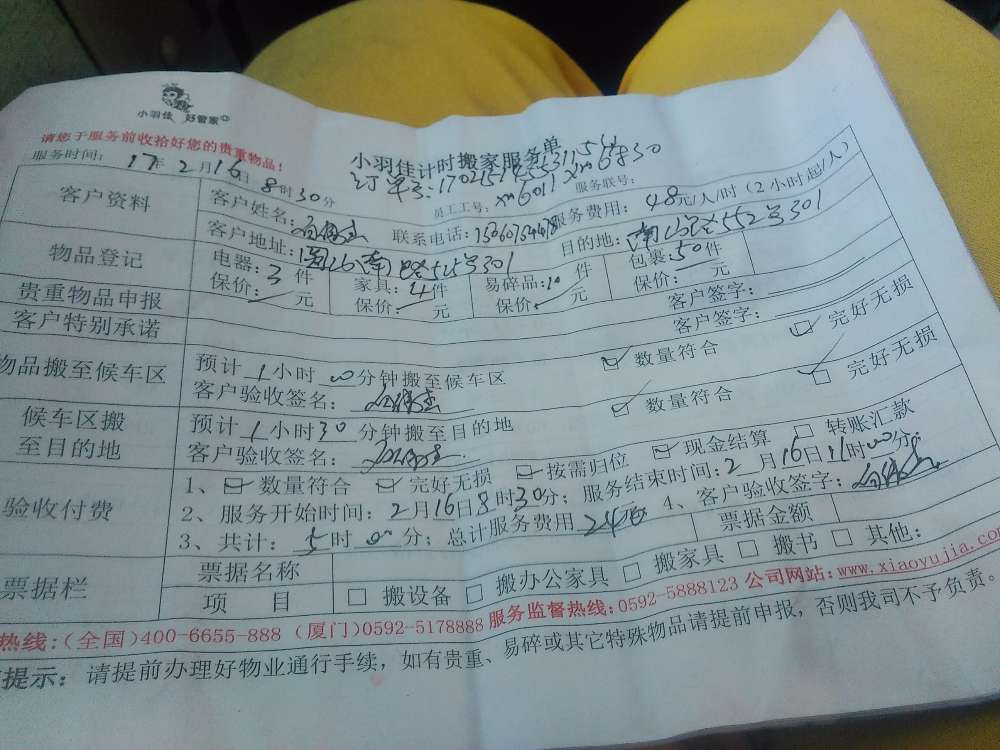 小羽佳 好管家
请您于服务前收拾好您的贵重物品!
小羽佳计时搬家服务单
服务时间: 17年2月16日8时30分
订单号:
员工工号: xm6011 xm6830 服务联号:
客户资料 客户姓名: 联系电话: 服务费用: 48元/人/时(2小时起/人)
客户地址: 552号301 目的地: 552号301
物品登记 电器: 3件 家具: 4件 易碎品: 10件 包裹: 50件
保价: 元 保价: 元 保价: 元 保价: 元
贵重物品申报 客户签字:
客户特别承诺 客户签字:
物品搬至候车区 预计1小时00分钟搬至候车区 数量符合 完好无损
客户验收签名:
候车区搬至目的地 预计1小时30分钟搬至目的地 数量符合 完好无损
客户验收签名: 现金结算 转账汇款
验收付费 1、数量符合 完好无损 按需归位
2、服务开始时间: 2月16日8时30分; 服务结束时间: 2月16日11时00分;
3、共计: 5时00分; 总计服务费用 240 4、客户验收签字:
票据栏 票据名称 票据金额
项 目 □ 搬设备 □ 搬办公家具 □ 搬家具 □ 搬书 □ 其他:
热线:(全国)400-6655-888 (厦门)0592-5178888 服务监督热线:0592-5888123 公司网站:www.xiaoyujia.com
提示: 请提前办理好物业通行手续,如有贵重、易碎或其它特殊物品请提前申报,否则我司不予负责。